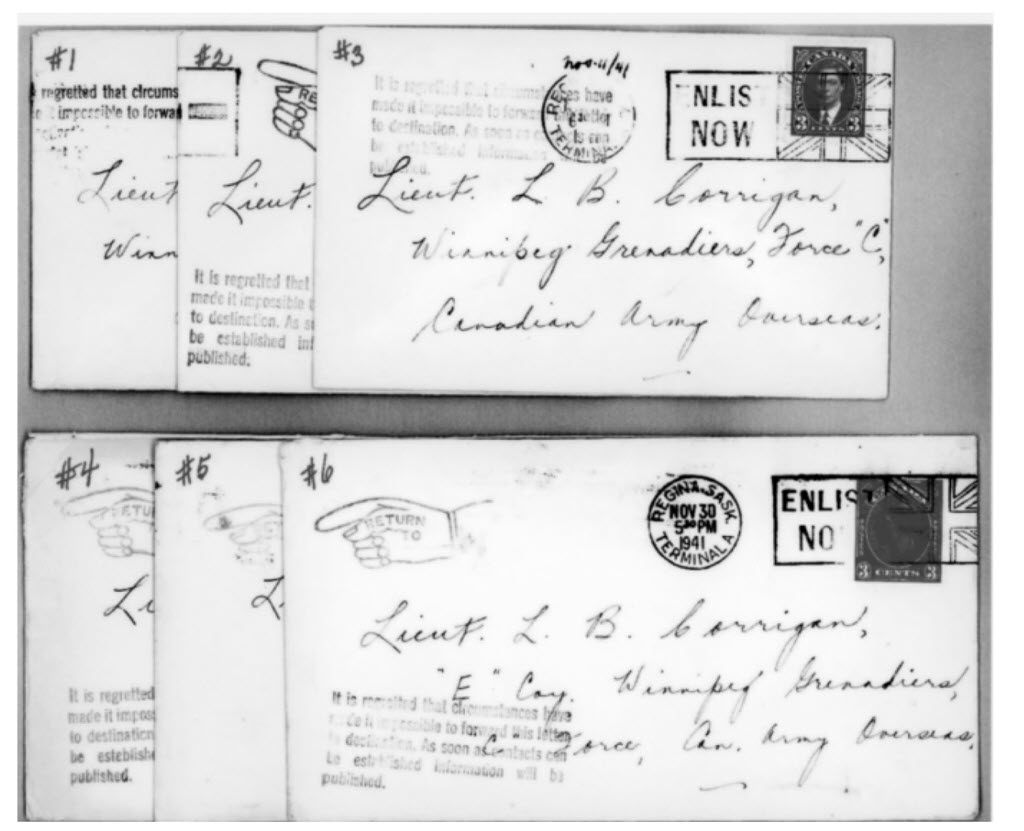 #1
regretted that circums
impossible to forwar
Lieut
Winn
#2
RE
Lieut.
It is regretted that
made it impossible
to destination. As s
be established inf
published.
#3
Nov-11/41
It is regretted that circumstances have
made it impossible to forward this letter
to destination. As soon as contacts can
be established information
published.
TERMIN
ENLIS
NOW
CANADA
3 CENTS 3
Lieut. L. B. Corrigan,
Winnipeg Grenadiers, Force "C",
Canadian Army Overseas.
#4
RETU
Li
It is regretted
made it impos
to destination
be establishe
published.
#5
L
#6
RETURN
TO
REGINA, SASK.
NOV 30
5 30 PM
1941
TERMINAL A
ENLIST
NO
3 CENTS 3
Lieut. L. B. Corrigan,
"E" Coy. Winnipeg Grenadiers,
C Force, Can. Army Overseas.
It is regretted that circumstances have
made it impossible to forward this letter
to destination. As soon as contacts can
be established information will be
published.